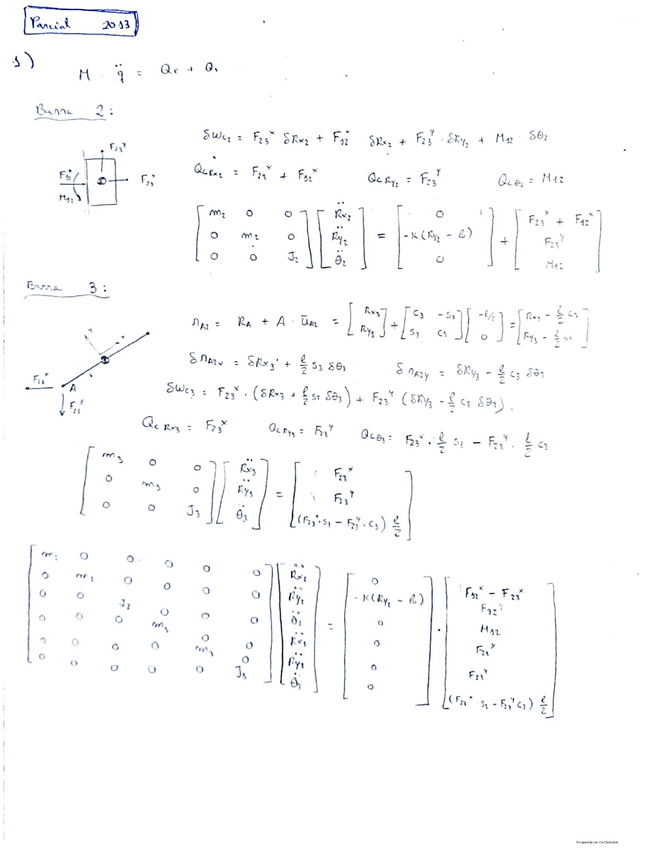 Parcial 2013
1)
M · q̈ = Qe + Q
Barra 2:
δWc2 = F23ˣ δRx2 + F12ˣ δRx2 + F23ʸ · δRy2 + M12 · δθ2
F23ʸ
F12ˣ
F23ˣ
M12
QcRx2 = F23ˣ + F12ˣ QcRy2 = F23ʸ Qcθ2 = M12
[m2 0 0; 0 m2 0; 0 0 J2] [R̈x2; R̈y2; θ̈2] = [0; -K(Ry2 - l0); 0] + [F23ˣ + F12ˣ; F23ʸ; M12]
Barra 3:
rA2 = RA + A · ūA2 = [Rx3; Ry3] + [c3 -s3; s3 c3] [-l/2; 0] = [Rx3 - l/2 c3; Ry3 - l/2 s3]
δrA2x = δRx3 + l/2 s3 δθ3 δrA2y = δRy3 - l/2 c3 δθ3
F23ˣ
A
F23ʸ
δWc3 = F23ˣ · (δRx3 + l/2 s3 δθ3) + F23ʸ (δRy3 - l/2 c3 δθ3).
QcRx3 = F23ˣ QcRy3 = F23ʸ Qcθ3 = F23ˣ · l/2 s3 - F23ʸ · l/2 c3
[m3 0 0; 0 m3 0; 0 0 J3] [R̈x3; R̈y3; θ̈3] = [F23ˣ; F23ʸ; (F23ˣ · s3 - F23ʸ · c3) l/2]
[m2 0 0 0 0 0; 0 m2 0 0 0 0; 0 0 J2 0 0 0; 0 0 0 m3 0 0; 0 0 0 0 m3 0; 0 0 0 0 0 J3] [R̈x2; R̈y2; θ̈2; R̈x3; R̈y3; θ̈3] = [0; -K(Ry2 - l0); 0; 0; 0; 0] · [F12ˣ - F23ˣ; F12ʸ; M12; F23ˣ; F23ʸ; (F23ˣ s3 - F23ʸ c3) l/2]